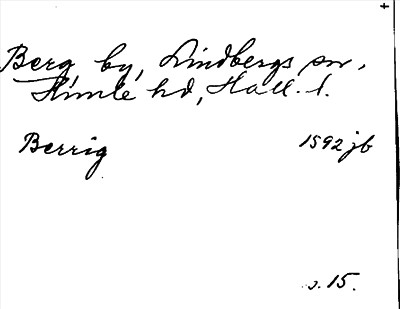 Berg, by, Lindbergs sn,
Himle hd, Hall. l.
Berrig 1592 jb
s. 15.